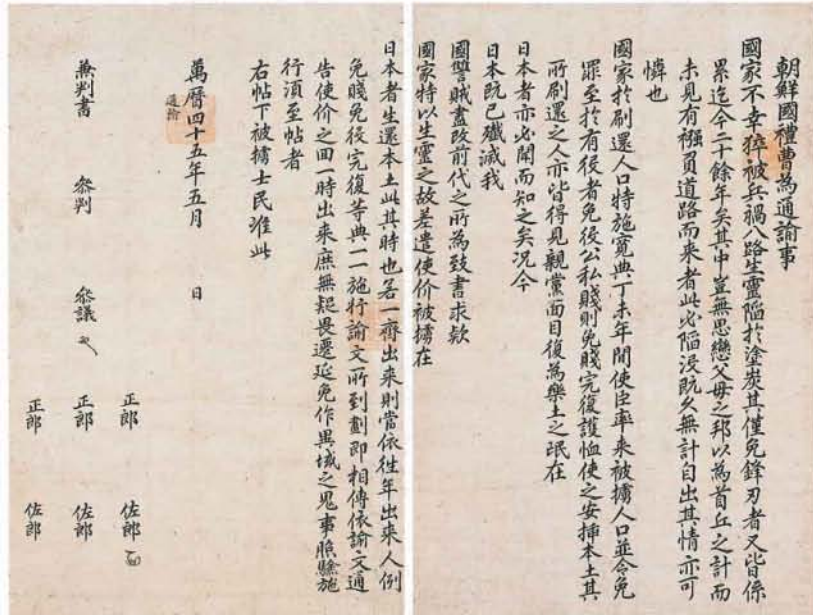 朝鮮國禮曹為通諭事
國家不幸猝被兵禍八路生靈陷於塗炭其僅免鋒刃者又皆係
累迄今二十餘年矣其中豈無思戀父母之邦以為首丘之計而
未見有襁負道路而來者此必陷沒既久無計自出其情亦可
憐也
國家於刷還人口特施寬典丁未年間使臣率來被擄人口並令免
罪至於有役者免役公私賤則免賤完復護恤使之安挿本土其
所刷還之人亦皆得見親黨面目復為樂土之氓在
日本者亦必聞而知之矣況今
日本既已殲滅我
國讐賊盡改前代之所為致書求款
國家特以生靈之故差遣使价被擄在
日本者生還本土此其時也若一齊出來則當依往年出來人例
免賤免役完復等典一一施行諭文所到劃即相傳依諭文通
告使价之回一時出來庶無疑畏遷延免作異域之鬼事照驗施
行須至帖者
右帖下被擄士民准此
萬曆四十五年五月 日
通諭
兼判書 叅判 叅議
正郎 佐郎
正郎 佐郎
正郎 佐郎